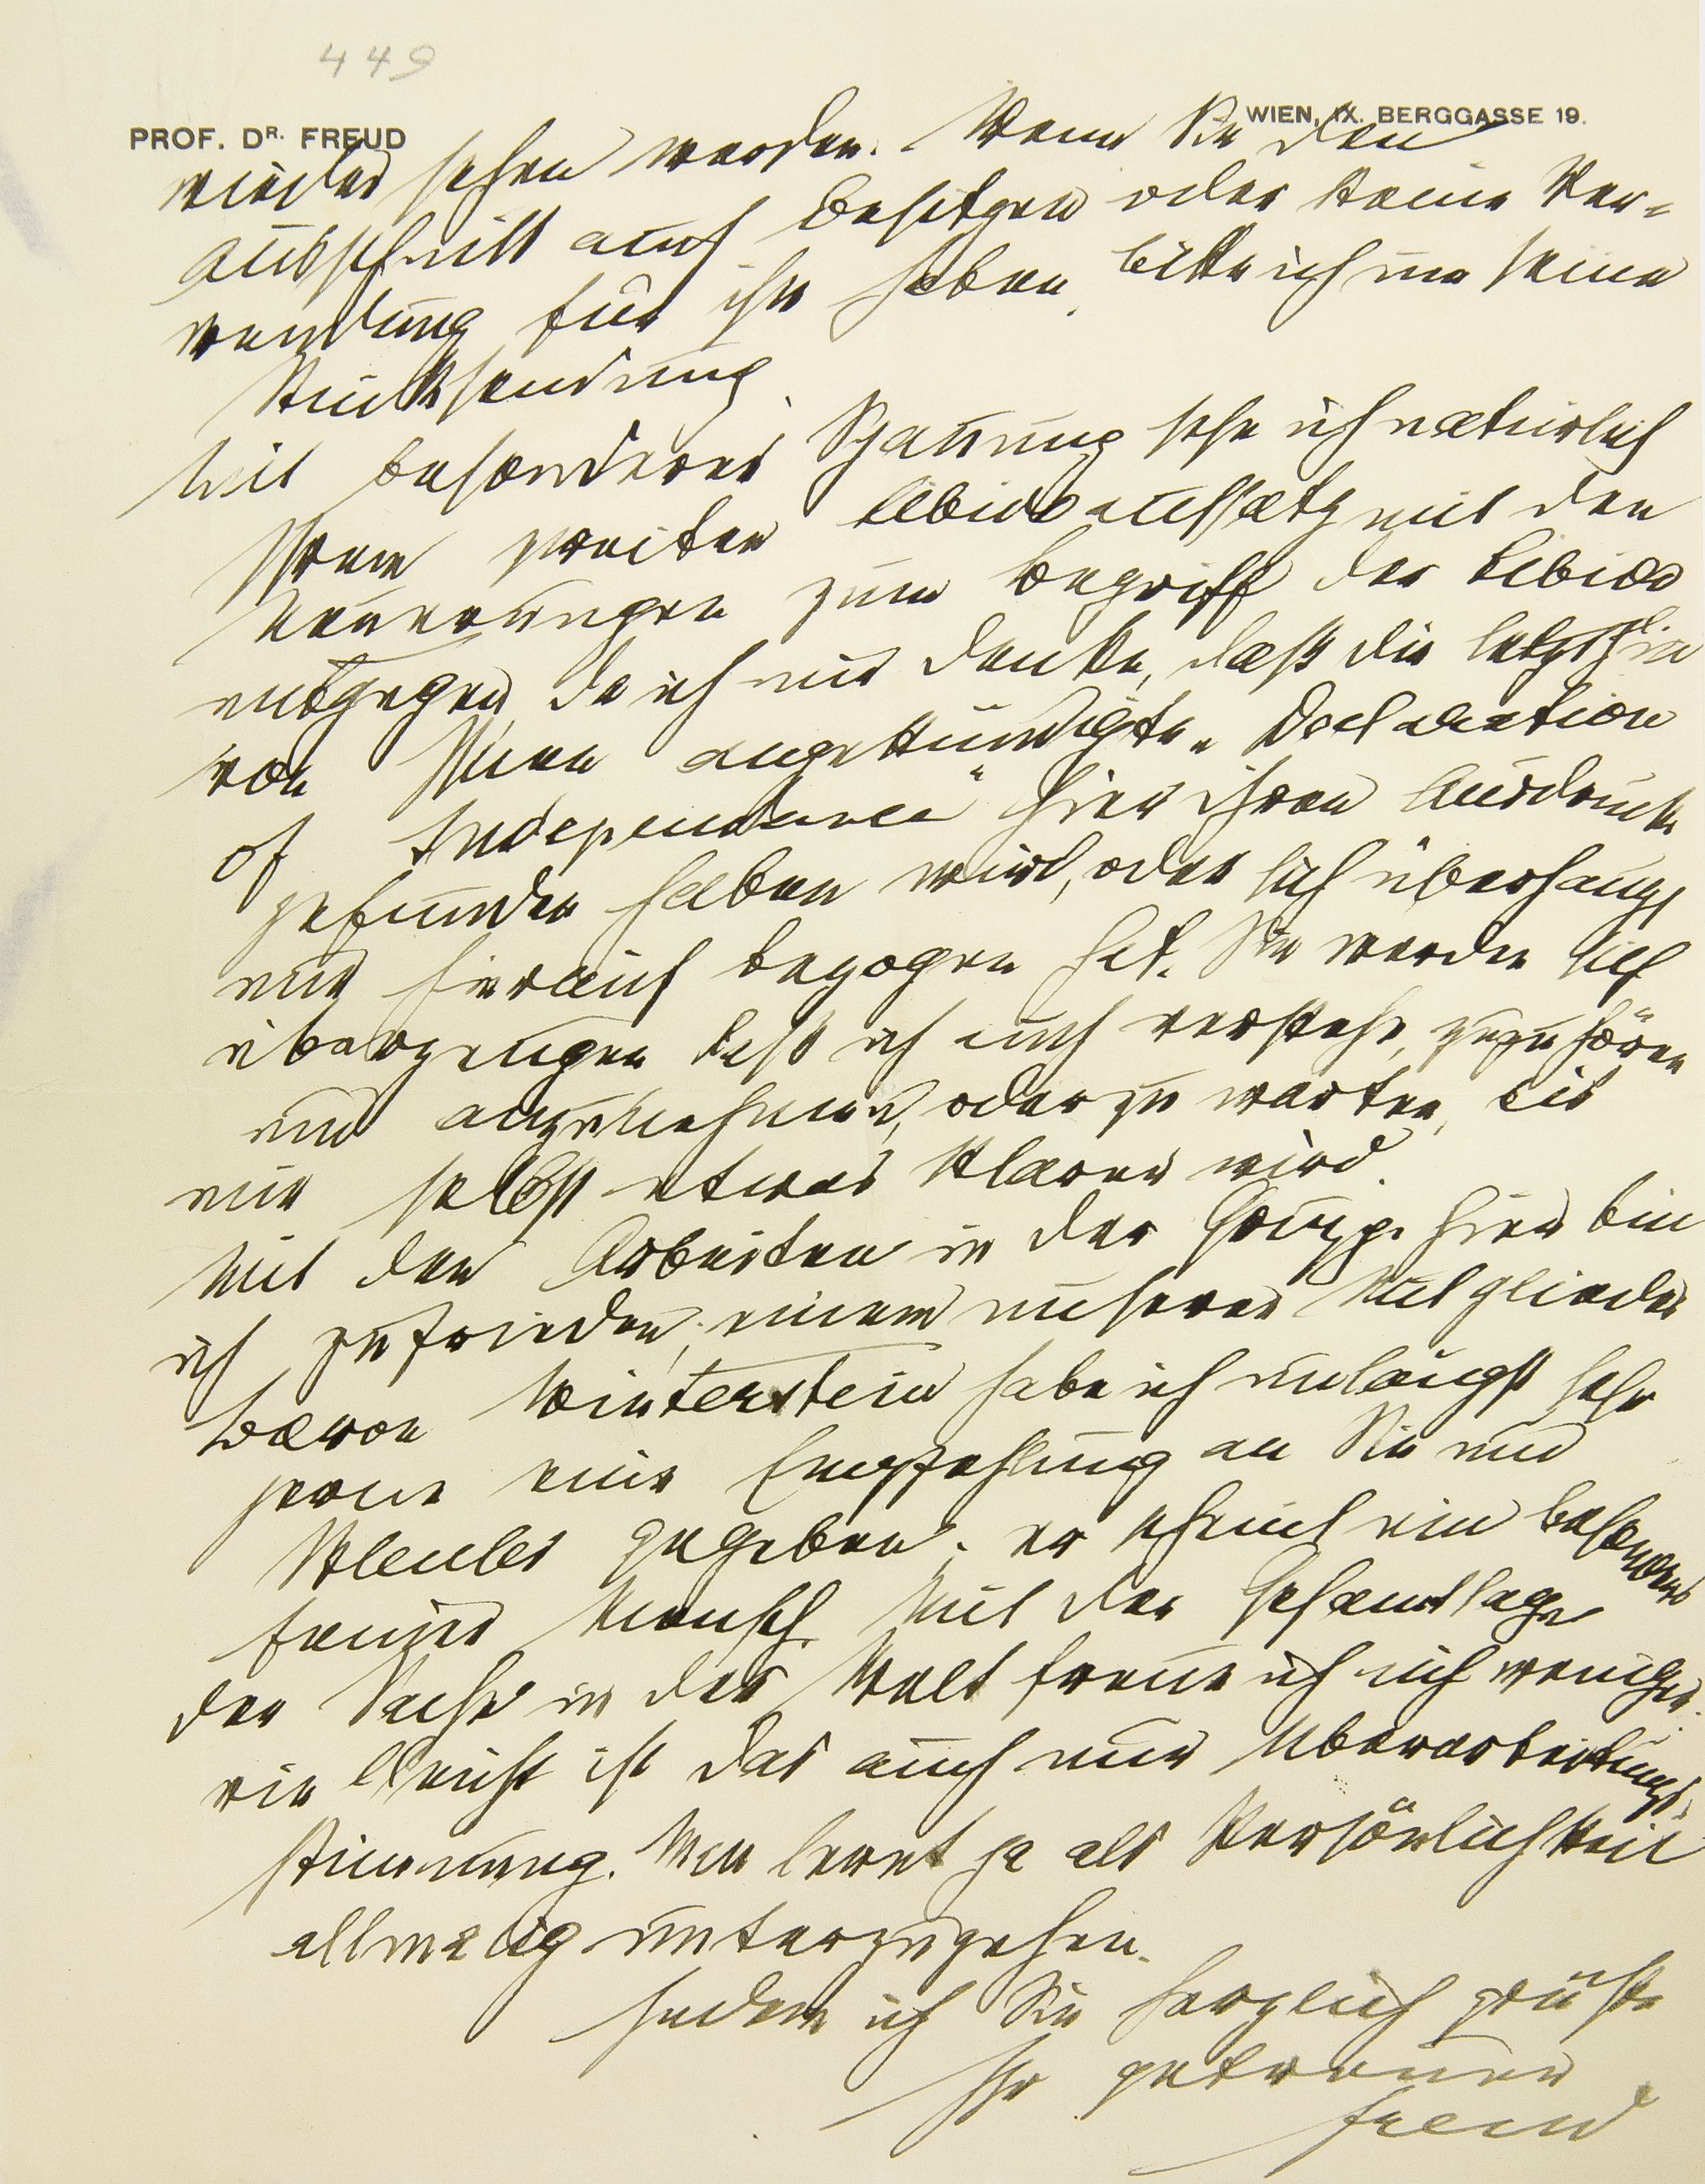 449
PROF. DR. FREUD
WIEN, IX. BERGGASSE 19.
wieder sehen werden. Wenn Sie den
Ausschnitt auch besitzen oder keine Ver-
wendung für ihn haben, bitte ich um seine
Rücksendung.
Mit besonderer Spannung sehe ich natürlich
Ihrem zweiten Libidoaufsatz mit den
Neuerungen zum Begriff der Libido
entgegen, da ich mir denke, daß die letzthin
von Ihnen angekündigte „Declaration
of Independence“ hier ihren Ausdruck
gefunden haben wird, oder sich überhaupt
nur hierauf bezogen hat. Sie werden sich
überzeugen daß ich auch verstehe, zuzuhören
und anzunehmen, oder zu warten, bis
mir selbst etwas klarer wird.
Mit den Arbeiten in der Gruppe hier bin
ich zufrieden; einem unserer Mitglieder
Baron Winterstein habe ich unlängst sehr
gerne eine Empfehlung an Sie und
Bleuler gegeben; er scheint ein besonders
feiner Mensch. Mit der Gesamtlage
der Sache in der Welt freue ich mich weniger.
vielleicht ist das auch nur Überarbeitungs-
stimmung. Man lernt ja als Persönlichkeit
allmälig unterzugehen.
Indem ich Sie herzlich grüße
Ihr getreuer
Freud